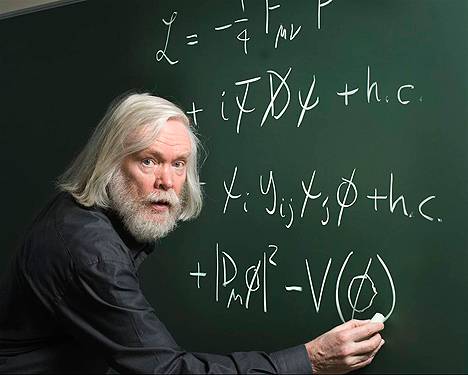 ℒ = -1/4 F_μν F
+ iψ̄D̸ψ + h.c.
+ χ_i y_ij χ_j φ + h.c.
+ |D_μ φ|² - V(φ)